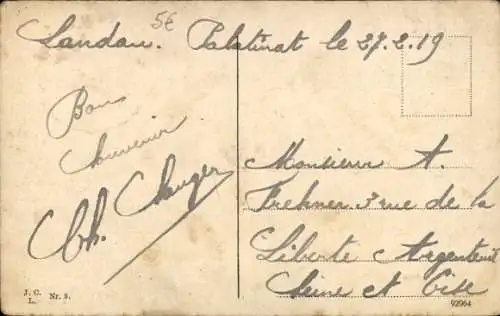 5€
Landau. Palatinat le 27.2.19
Bon
Souvenir
Ch. Changer
Monsieur A.
Frehner 3 rue de la
Liberté Argenteuil
Seine et Oise
J. C.
L. Nr. 3.
92964